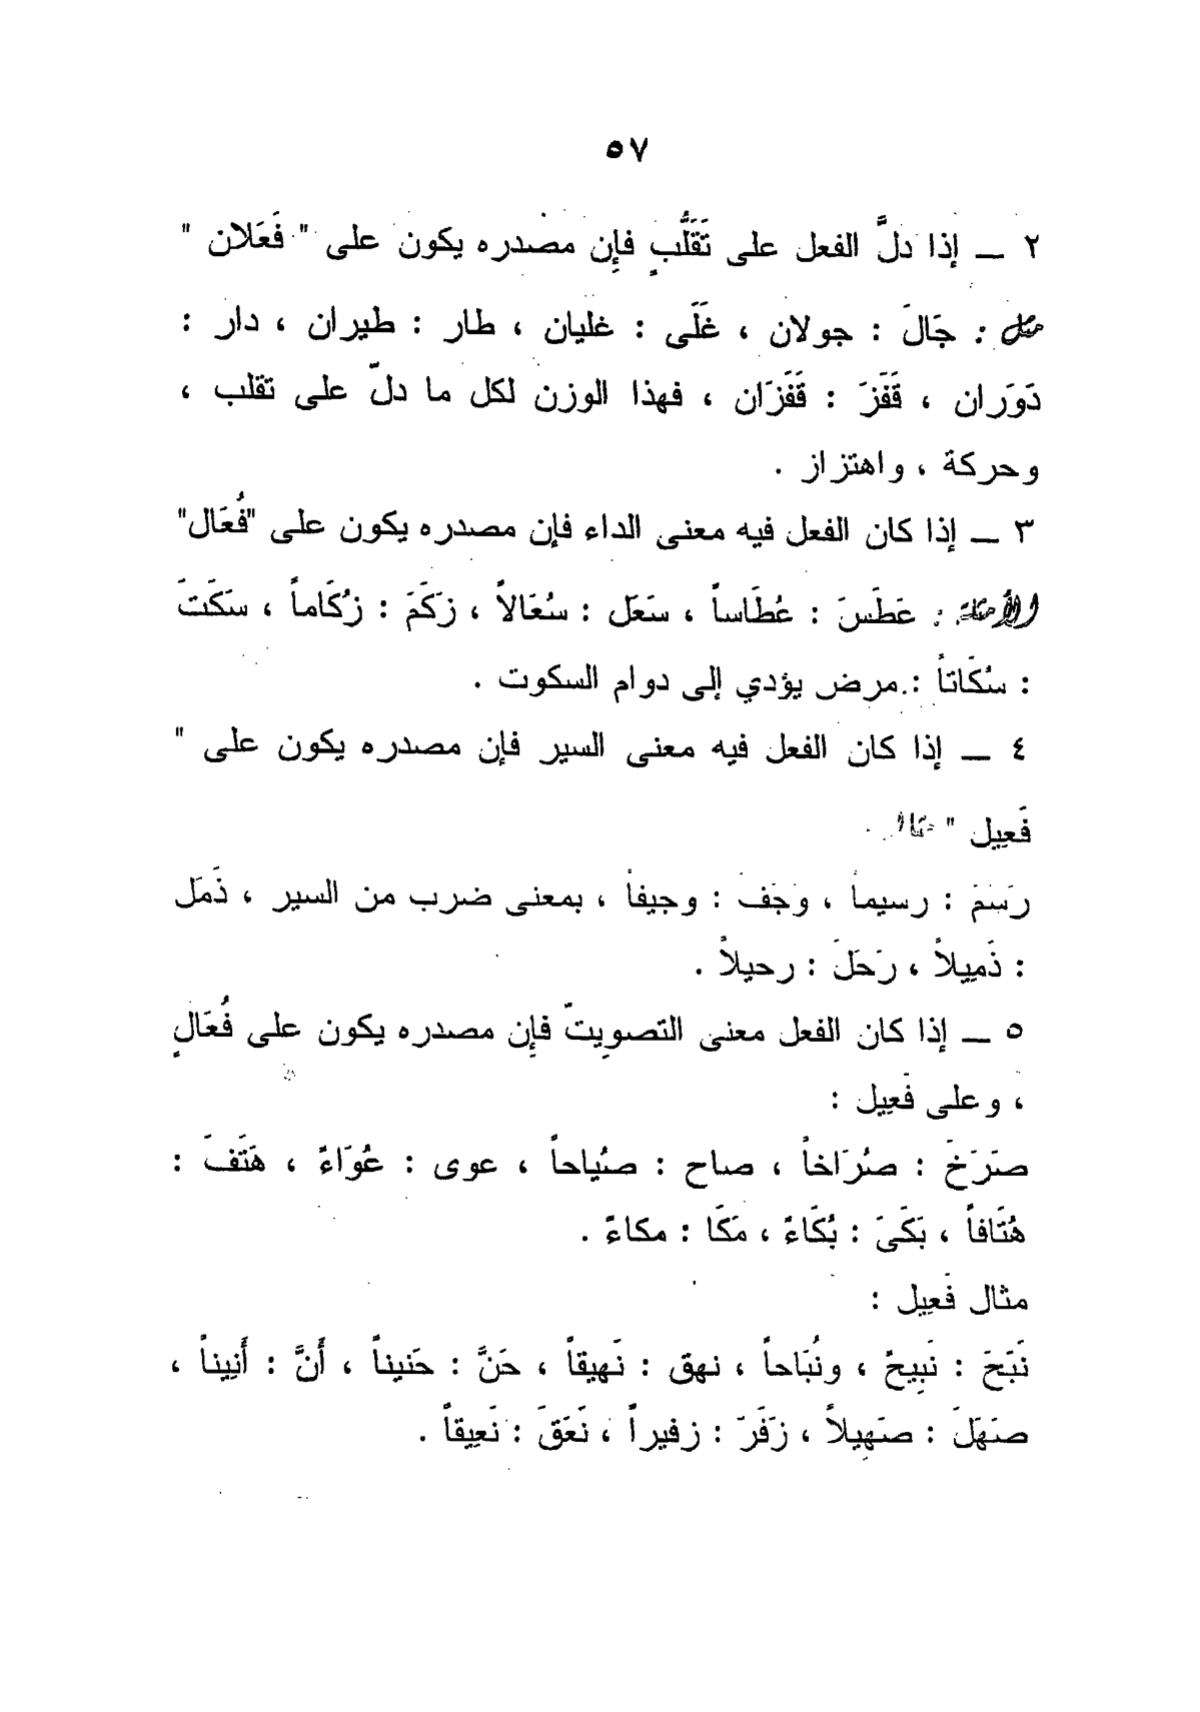 ٥٧
٢ ــ إذا دلَّ الفعل على تَقَلُّبٍ فإِن مصدره يكون على " فَعَلان "
مثل : جَالَ : جولان ، غَلَى : غليان ، طار : طيران ، دار :
دَوَران ، قَفَزَ : قَفَزَان ، فهذا الوزن لكل ما دلّ على تقلب ،
وحركة ، واهتزاز .
٣ ــ إذا كان الفعل فيه معنى الداء فإن مصدره يكون على "فُعَال"
عَطَسَ : عُطَاساً ، سَعَل : سُعَالاً ، زَكَمَ : زكُاَماً ، سَكَتَ
: سُكَاتاً : مرض يؤدي إلى دوام السكوت .
٤ ــ إذا كان الفعل فيه معنى السير فإن مصدره يكون على "
فَعِيل "
رَسَمَ : رسيماً ، وَجَفَ : وجيفاً ، بمعنى ضرب من السير ، ذَمَل
: ذَمِيلاً ، رَحَلَ : رحيلاً .
٥ ــ إذا كان الفعل معنى التصويت فإِن مصدره يكون على فُعَالٍ
، وعلى فَعِيل :
صَرَخَ : صُرَاخاً ، صاح : صُياحاً ، عوى : عُوَاءً ، هَتَفَ :
هُتَافاً ، بَكَىَ : بُكَاءً ، مَكَا : مكاءً .
مثال فَعِيل :
نَبَحَ : نَبِيحٌ ، ونُبَاحاً ، نهق : نَهيقاً ، حَنَّ : حَنيناً ، أَنَّ : أَنِيناً ،
صَهَلَ : صَهِيلاً ، زَفَرَ : زفيراً ، نَعَقَ : نَعِيقاً .